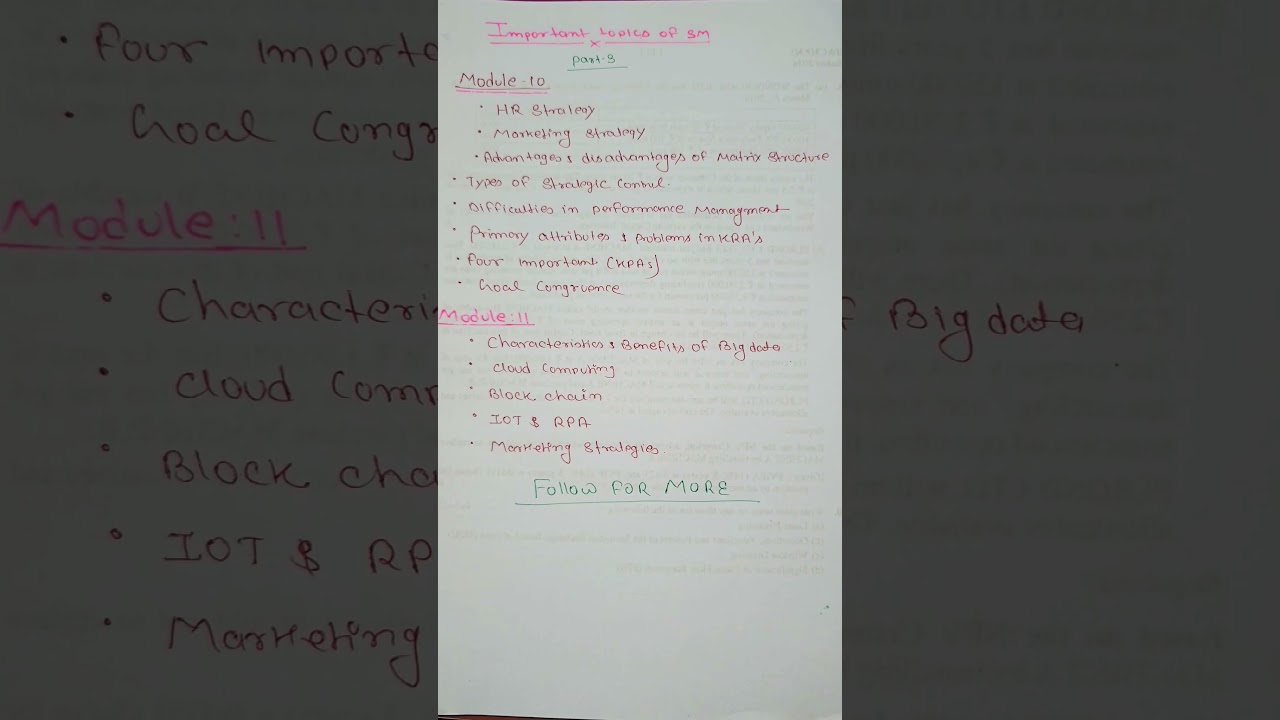 Important topics of SM
Part-3
Module-10
• HR Strategy
• Marketing Strategy
• Advantages & disadvantages of Matrix Structure
• Types of Strategic Control.
• Difficulties in performance Managment
• Primary attributes & problems in KRA's
• Four important (KPAs)
• Goal Congruence
Module:11
• Characteristics & Benefits of Big data
• Cloud Computing
• Block chain
• IOT & RPA
• Marketing Strategies.
FOLLOW FOR MORE